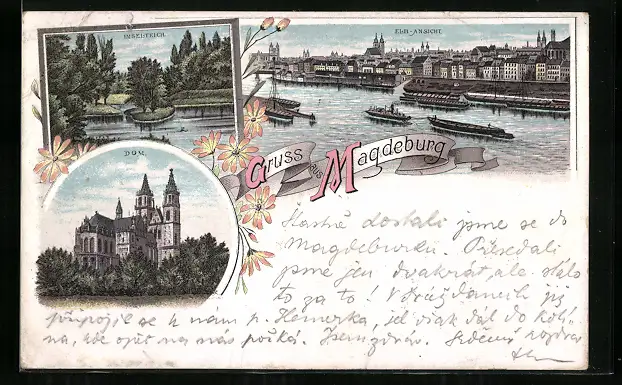 INSELTEICH
ELB-ANSICHT
DOM.
Gruss aus Magdeburg
šťastně dostali jsme se do
Magdeburku. Přesedali
jsme jen dvakrát, ale stálo
to za to! V Drážďanech již
připojil se k nám p. Hemerka, jel však dál do Kolí-
na, kde opět na nás počká. Jsem zdráv. Srdečný pozdrav